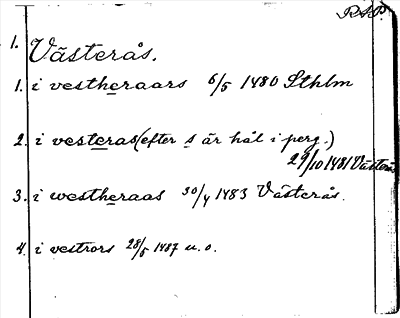 R.S.P.
1. Västerås.
1. i vestheraars 6/5 1480 Sthlm
2. i vesteras (efter s är hål i perg.)
29/10 1481 Västerås
3. i westheraas 30/4 1483 Västerås.
4. i vestrors 28/5 1487 u. o.